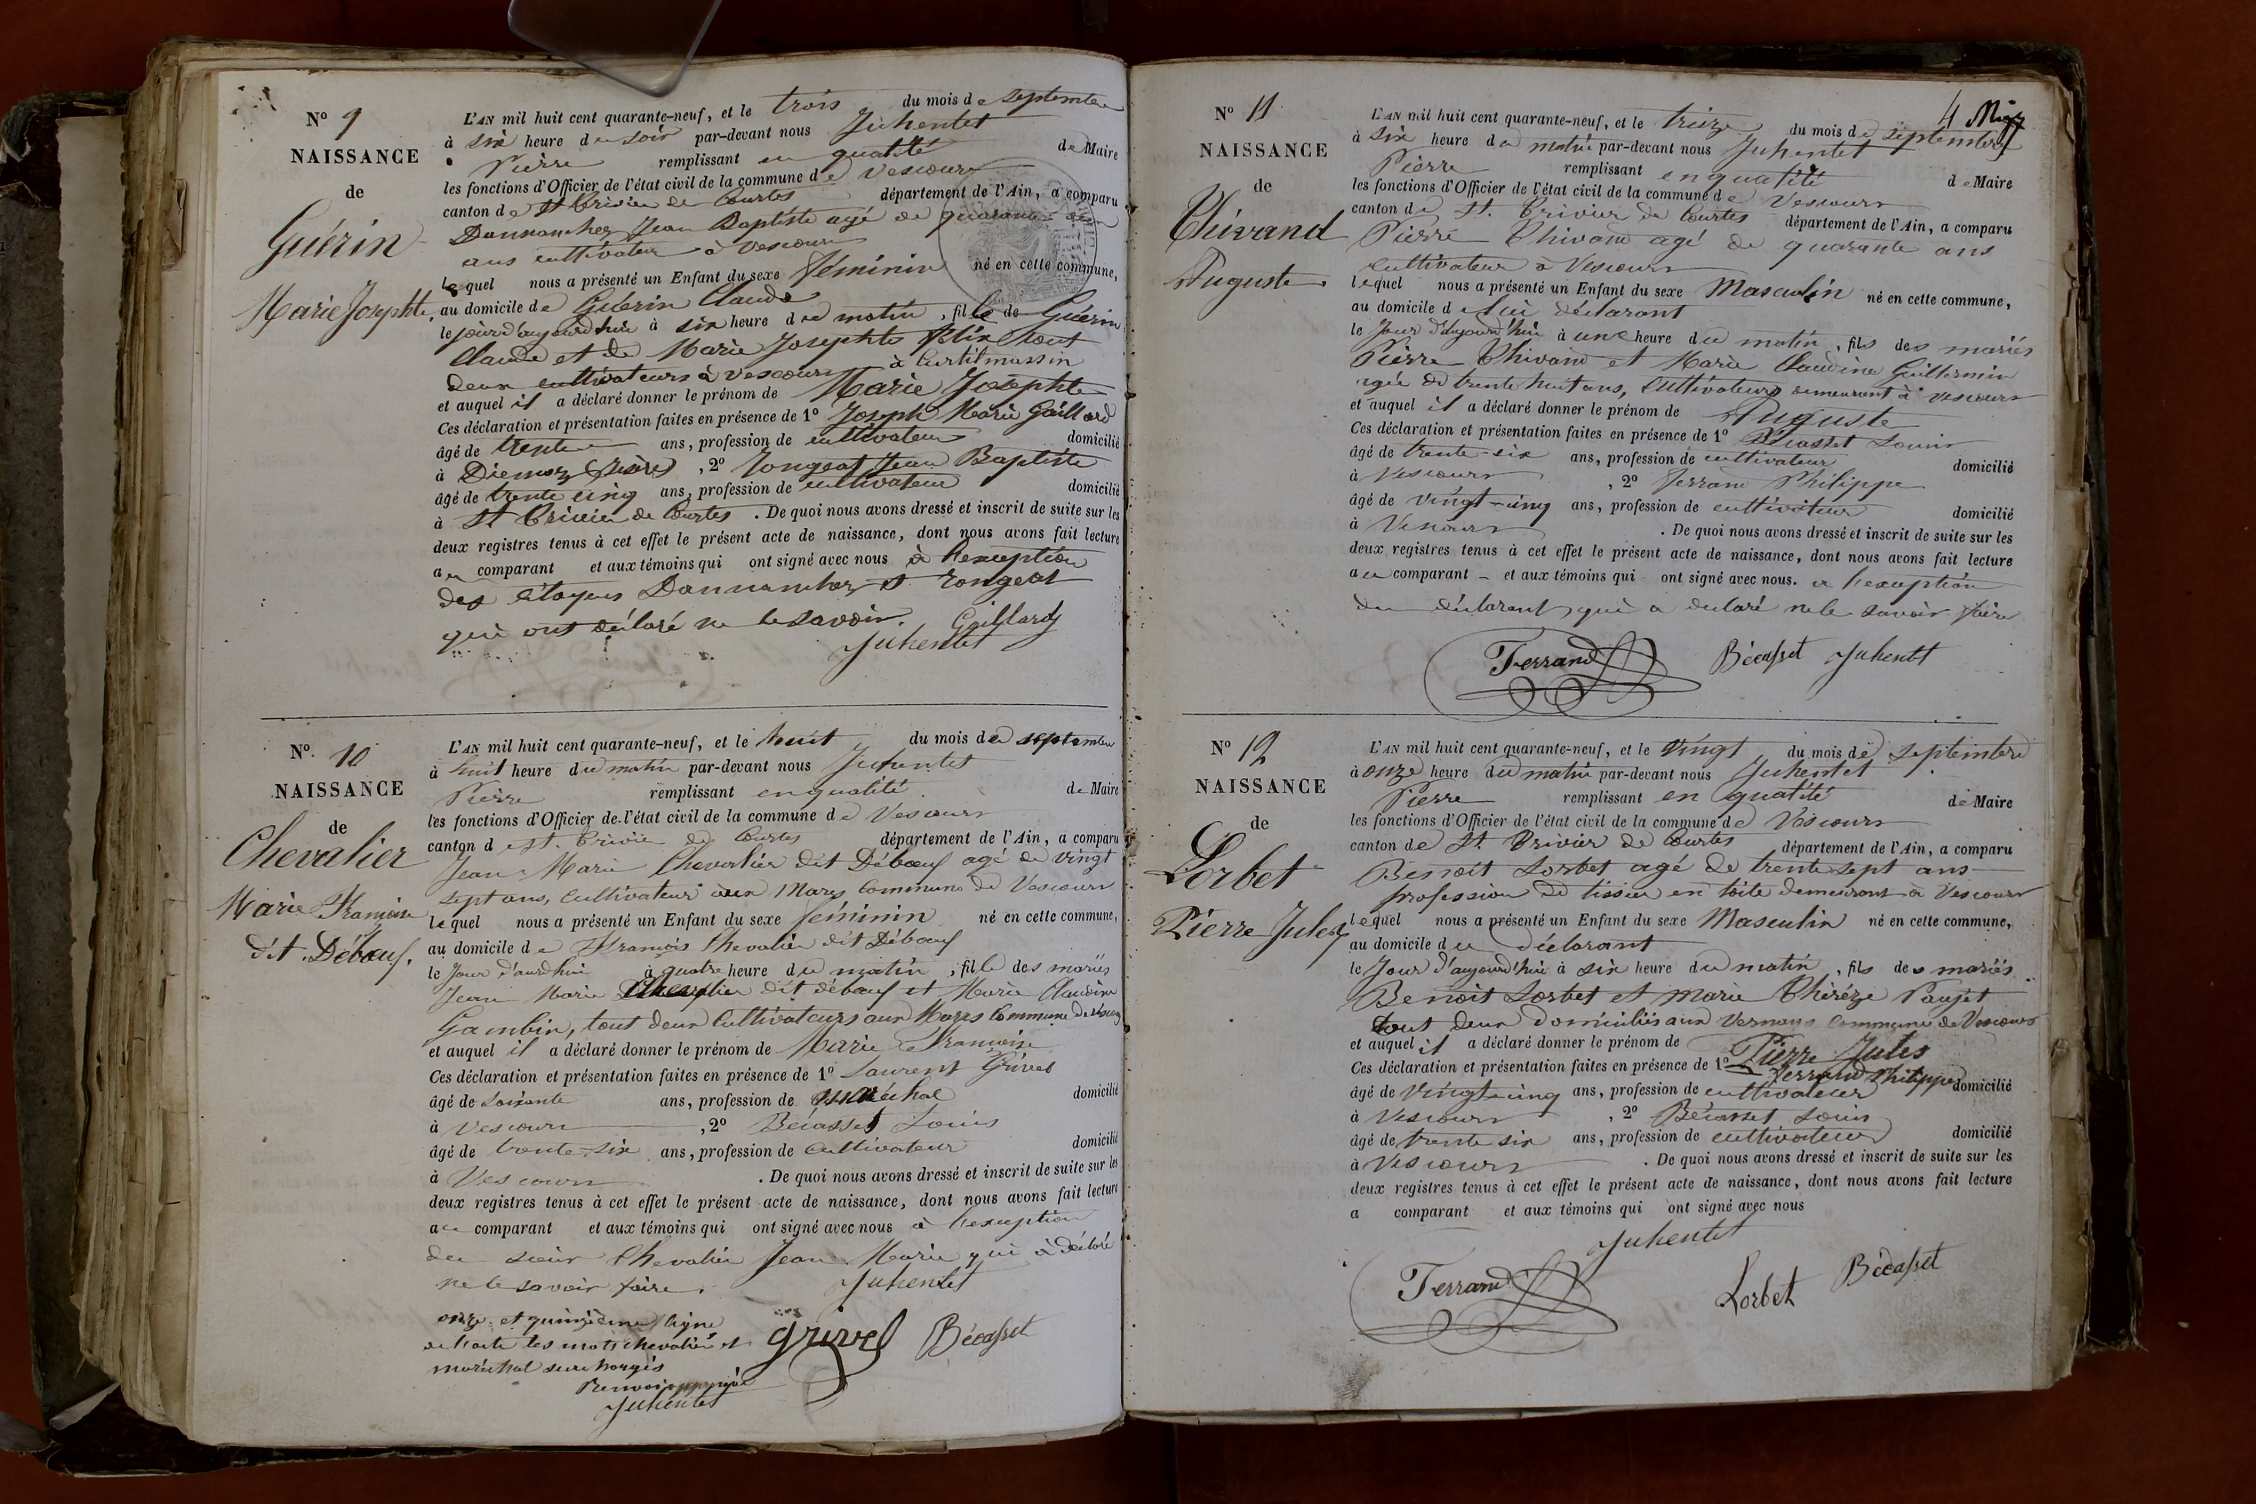 N° 9
NAISSANCE
de
Guérin
Marie Josephte.
L'AN mil huit cent quarante-neuf, et le trois du mois de septembre
à six heure du soir par-devant nous Juhentet
Pierre remplissant en qualité de Maire
les fonctions d'Officier de l'état civil de la commune de Vescours
canton de St Trivier de Courtes département de l'Ain, a comparu
Dannanchez Jean Baptiste agé de quarante
ans cultivateur à Vescours
lequel nous a présenté un Enfant du sexe féminin né en cette commune,
au domicile de Guérin Claude
le jour d'aujourd'hui à six heure du matin, fille de Guérin
Claude et de Marie Josephte tout
deux cultivateurs à Vescours à Curtilmussin
et auquel il a déclaré donner le prénom de Marie Josephte
Ces déclaration et présentation faites en présence de 1° Joseph Marie Gaillard
âgé de trente ans, profession de cultivateur domicilié
à Diemoz (Isère), 2° Jongeat Jean Baptiste
âgé de trente cinq ans, profession de cultivateur domicilié
à St Trivier de Courtes. De quoi nous avons dressé et inscrit de suite sur les
deux registres tenus à cet effet le présent acte de naissance, dont nous avons fait lecture
au comparant et aux témoins qui ont signé avec nous à l'exception
des citoyens Dannanchez et Jongeat
qui ont déclaré ne le savoir. Gaillard
Juhentet
N°. 10
NAISSANCE
de
Chevalier
Marie Françoise
dit Débœuf.
L'AN mil huit cent quarante-neuf, et le huit du mois de septembre
à huit heure du matin par-devant nous Juhentet
Pierre remplissant en qualité de Maire
les fonctions d'Officier de l'état civil de la commune de Vescours
canton de St. Trivier de Courtes département de l'Ain, a comparu
Jean Marie Chevalier dit Débœuf agé de vingt
sept ans, cultivateur aux Marys commune de Vescours
lequel nous a présenté un Enfant du sexe féminin né en cette commune,
au domicile de François Chevalier dit Débœuf
le Jour d'aurdhui à quatre heure du matin, fille des mariés
Jean Marie Chevalier dit débœuf et Marie Claudine
Gambin, tout deux Cultivateurs aux Marys Commune de Vescours
et auquel il a déclaré donner le prénom de Marie Françoise
Ces déclaration et présentation faites en présence de 1° Laurent Grivel
âgé de soixante ans, profession de maréchal domicilié
à Vescours, 2° Bécasset Louis
âgé de trente-six ans, profession de cultivateur domicilié
à Vescours. De quoi nous avons dressé et inscrit de suite sur les
deux registres tenus à cet effet le présent acte de naissance, dont nous avons fait lecture
au comparant et aux témoins qui ont signé avec nous à l'exception
du sieur Chevalier Jean Marie qui a déclaré
ne le savoir faire. Juhentet
onze et quinzième ligne
de l'acte les mots chevalier et grivel Bécasset
maréchal surchargés
Renvoi approuvé
Juhentet
4 Mig
N° 11
NAISSANCE
de
Thivand
Auguste
L'AN mil huit cent quarante-neuf, et le treize du mois de septembre
à six heure du matin par-devant nous Juhentet
Pierre remplissant en qualité de Maire
les fonctions d'Officier de l'état civil de la commune de Vescours
canton de St. Trivier de Courtes département de l'Ain, a comparu
Pierre Thivand agé de quarante ans
cultivateur à Vescours
lequel nous a présenté un Enfant du sexe Masculin né en cette commune,
au domicile de lui déclarant
le Jour d'aujourd'hui à une heure du matin, fils des mariés
Pierre Thivand et Marie Claudine Guillermin
agée de trente huit ans, Cultivateurs demeurant à Vescours
et auquel il a déclaré donner le prénom de Auguste
Ces déclaration et présentation faites en présence de 1° Bécasset Louis
âgé de trente-six ans, profession de cultivateur domicilié
à Vescours, 2° Ferrand Philippe
âgé de vingt-cinq ans, profession de cultivateur domicilié
à Vescours. De quoi nous avons dressé et inscrit de suite sur les
deux registres tenus à cet effet le présent acte de naissance, dont nous avons fait lecture
au comparant et aux témoins qui ont signé avec nous. à l'exception
du déclarant, qui a déclaré ne le savoir faire
Ferrand Bécasset Juhentet
N° 12
NAISSANCE
de
Lorbet
Pierre Jules
L'AN mil huit cent quarante-neuf, et le vingt du mois de septembre
à onze heure du matin par-devant nous Juhentet
Pierre remplissant en qualité de Maire
les fonctions d'Officier de l'état civil de la commune de Vescours
canton de St. Trivier de Courtes département de l'Ain, a comparu
Benoit Lorbet agé de trente sept ans
profession de tissier en toile demeurant à Vescours
lequel nous a présenté un Enfant du sexe Masculin né en cette commune,
au domicile du déclarant
le Jour d'aujourd'hui à six heure du matin, fils des mariés
Benoit Lorbet et Marie Thérèze Paujet
tout deux domiciliés aux Vernays commune de Vescours
et auquel il a déclaré donner le prénom de Pierre Jules
Ces déclaration et présentation faites en présence de 1° Ferrand Philippe
âgé de vingt-cinq ans, profession de cultivateur domicilié
à Vescours, 2° Bécasset Louis
âgé de trente six ans, profession de cultivateur domicilié
à Vescours. De quoi nous avons dressé et inscrit de suite sur les
deux registres tenus à cet effet le présent acte de naissance, dont nous avons fait lecture
a comparant et aux témoins qui ont signé avec nous
Juhentet
Ferrand Lorbet Bécasset